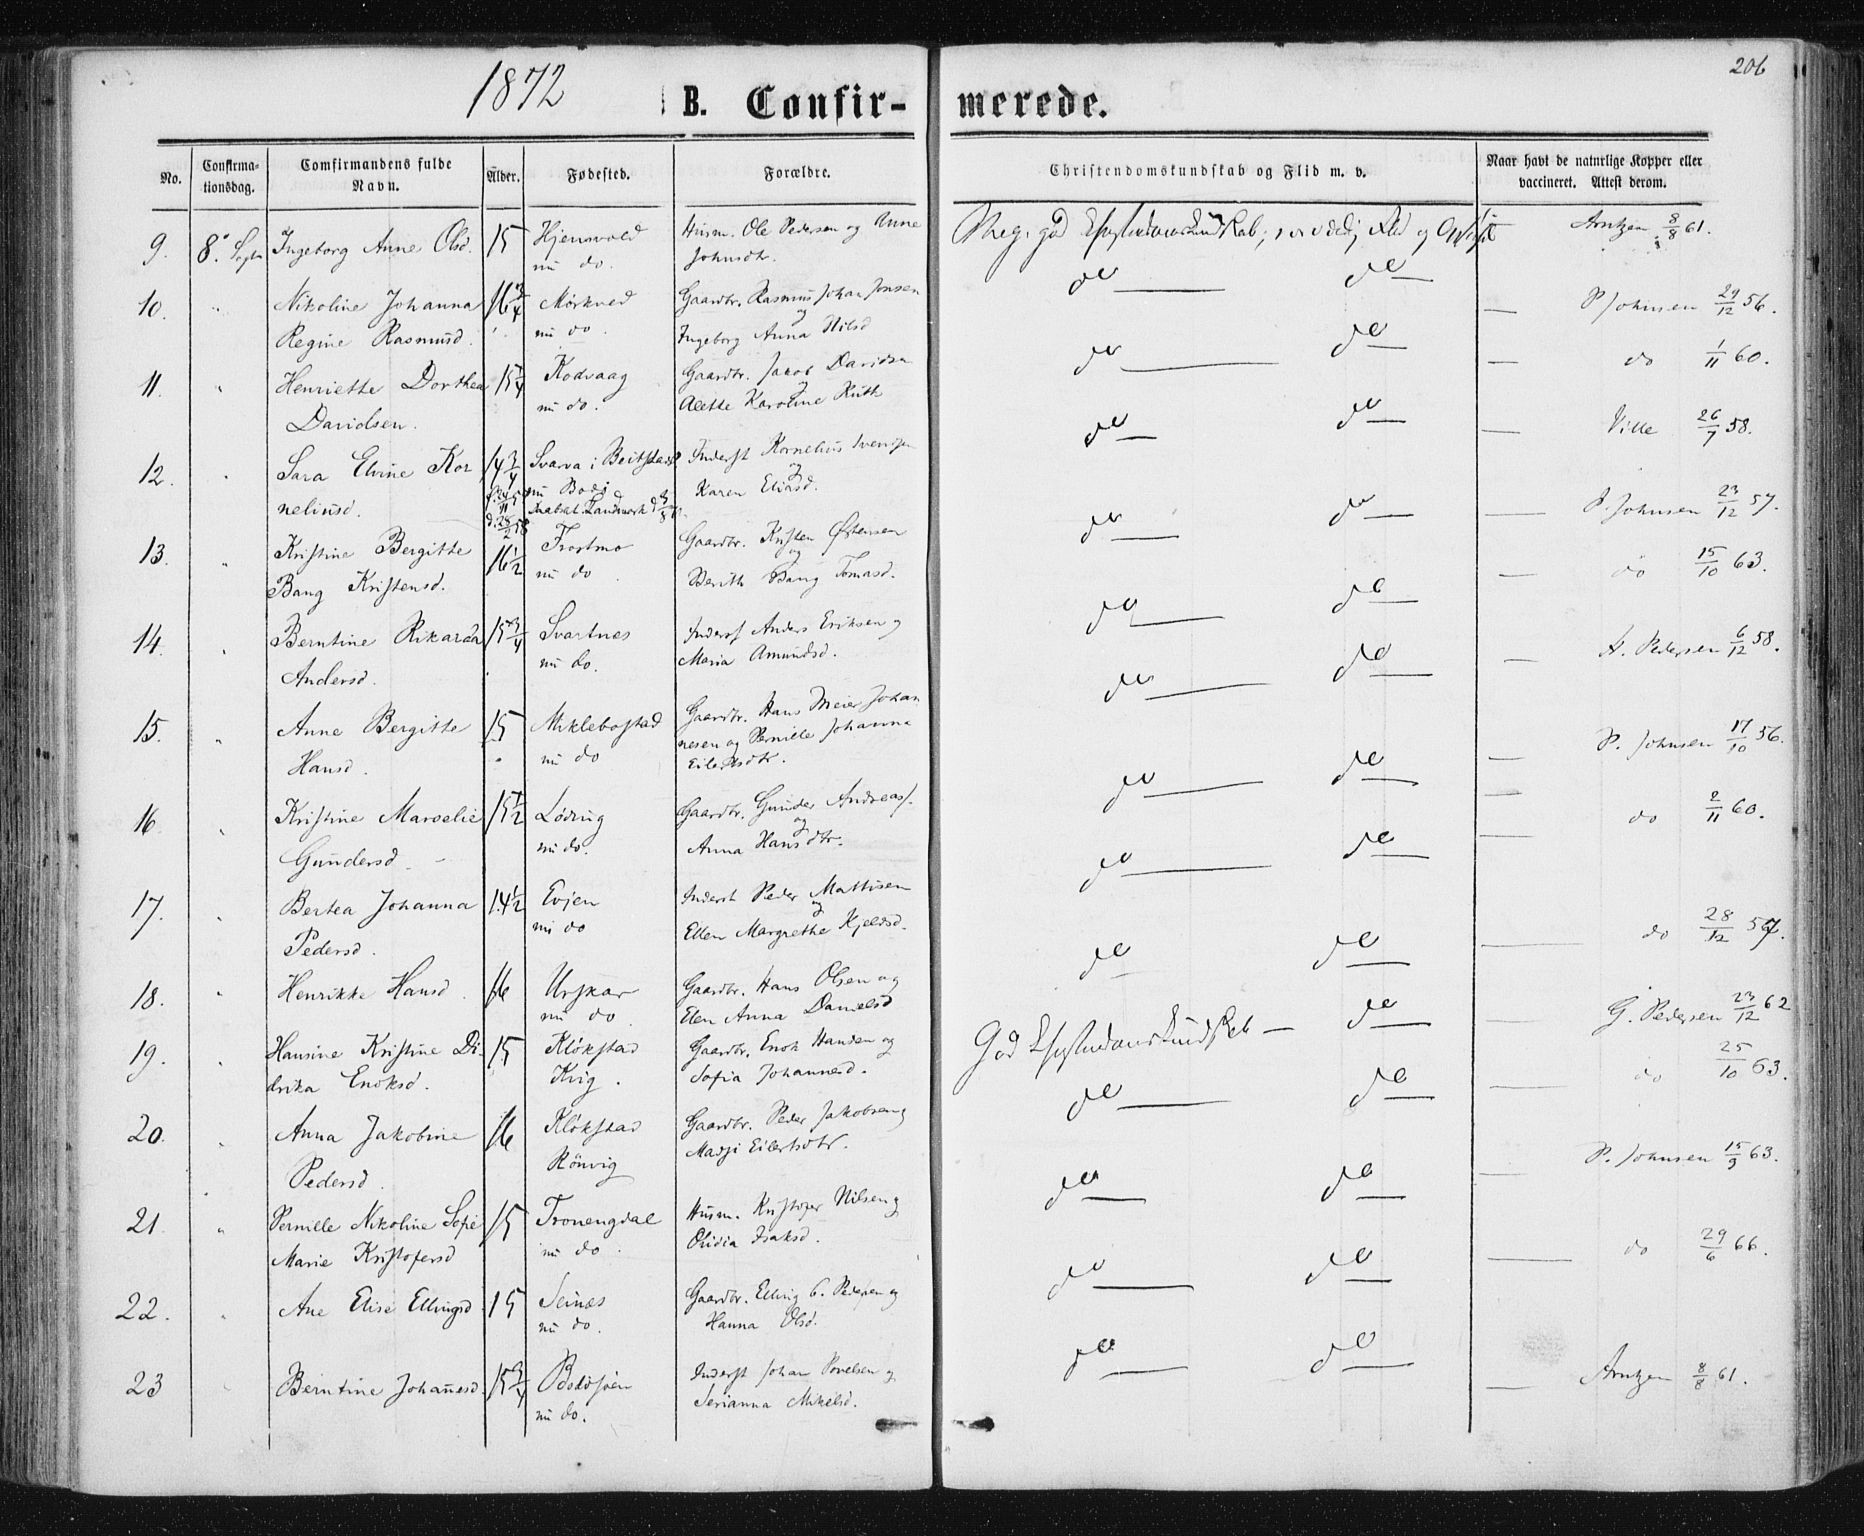 1872
206
B. Confir-
merede.
No.
Confirma-
tionsdag.
Comfirmandens fulde
Navn.
Alder.
Fødested.
Forældre.
Christendomskundskab og Flid m. v.
Naar havt de naturlige Kopper eller
vaccineret. Attest derom.
9. 8. Septr Ingeborg Anne Olsd. 15 Hjernvold Husm. Ole Pedersen og Anne Meg. god Christendomskundskab; Flid og Arntzen 8/8 61.
nu do. Johnsdtr.
do do
10. " Nikoline Johanna 16 3/4 Mørkved Gaardbr. Rasmus Johan Jensen P Johnsen 29/12 56.
og
Regine Rasmusd. nu do. Ingeborg Anna Nilsd
do do
11. " Henriette Dorthea 15 1/4 Kodvaag Gaardbr. Jacob Davidsen do 1/11 60.
nu do. Alette Karoline Ruth
Davidsen.
do do
12. " Sara Elvine Kor 14 3/4 Svarva i Beitstad Inderst Kornelius Svensen Ville 26/7 58.
og
neliusd. nu Bodø Karen Eliasd.
do do
13. " Kristine Bergitte 16 1/2 Trostmo Gaardbr. Kristen Østensen P. Johnsen 23/12 57.
og
Bang Kristensd. nu do Berith Bang Tomasd.
do 15/10 63.
do do
14. " Berntine Rikarda 15 3/4 Svartnes Inderst Anders Eriksen og
nu do. Maria Amundsd.
Andersd.
A. Pedersen 6/12 58.
do do
15. " Anne Bergitte 15 Miklebostad Gaardbr. Hans Meier Johan
nesen og Pernille Johanna
Hansd. nu do Eilertsdtr.
P. Johnsen 17/10 56.
do do
16. " Kristine Marselie 15 1/2 Løding Gaardbr. Gunder Andreas.
og
nu do. Anna Hansdtr.
Gundersd.
do 2/11 60.
do do
17. " Bertea Johanna 14 1/2 Evjen Inderst Peder Mattisen
og
nu do Ellen Margrethe Kjeldsd.
Pedersd.
do 28/12 57.
do do
18. " Henrikke Hansd. 16 Urskar Gaardbr. Hans Olsen og
nu do Elen Anna Danielsd
G. Pedersen 23/12 62
19. " Hansine Kristine Di- 15 Kløkstad Gaardbr. Enok Hansen og God Christendomskundskab — do
drika Enoksd. Sofia Johannesd.
do 25/10 63.
do do
20. " Anna Jakobine 16 Kløkstad Gaardbr. Peder Jakobsen og
Rönvig Eilertsdtr.
Pedersd.
P. Johnsen 15/9 63.
do do
21. " Pernille Nikoline Sofie 15 Tronengdal Husm. Kristofer Nilsen og
Marie Kristofersd nu do. Isaksd.
do 29/6 66.
do do
22. " Ane Elise Ellingsd. 15 Seines Gaardbr. Elling Pedersen og
nu do. Hanna Olsd.
do do
23 " Berntine Johanesd. 15 3/4 Bodøsjøen Inderst Johan Povelsen og Arntzen 8/8 61.
nu do. Serianna Mikelsd.